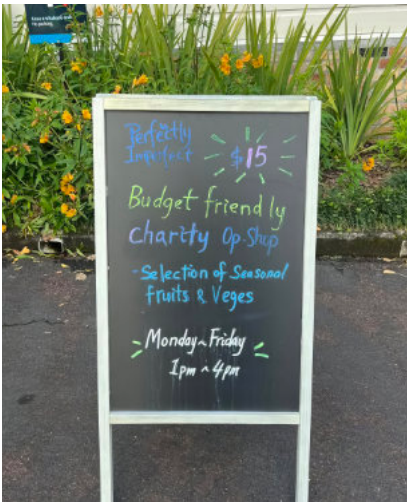 Perfectly
Imperfect
$15
Budget friendly
Charity Op-Shop
-Selection of Seasonal
Fruits & Veges
Monday~Friday
1pm ~ 4pm